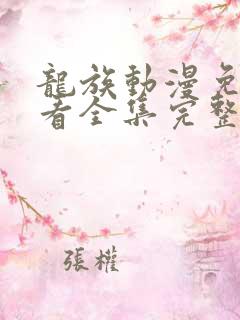 龍族動漫免
看全集完整
張權